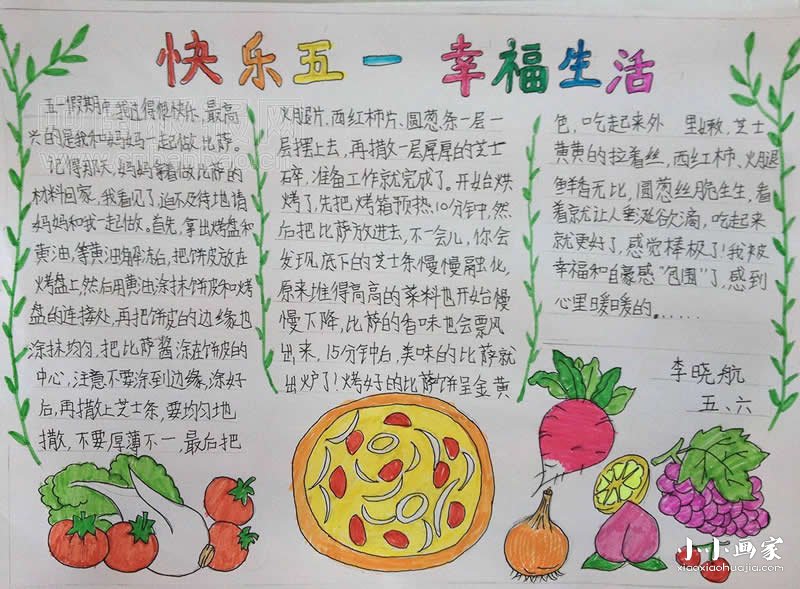 快乐五一 幸福生活
五一假期里,我过得很快乐,最高
兴的是我和妈妈一起做比萨。
记得那天,妈妈拿着做比萨的
材料回家,我看见了,迫不及待地请
妈妈和我一起做。首先,拿出烤盘和
黄油,等黄油解冻后,把饼皮放在
烤盘上,然后用黄油涂抹饼皮和烤
盘的连接处,再把饼皮的边缘也
涂抹均匀,把比萨酱涂在饼皮的
中心,注意不要涂到边缘,涂好
后,再撒上芝士条,要均匀地
撒,不要厚薄不一,最后把
火腿片,西红柿片、圆葱条一层一
层摆上去,再撒一层厚厚的芝士
碎,准备工作就完成了。开始烘
烤了,先把烤箱预热10分钟,然
后把比萨放进去,不一会儿,你会
发现底下的芝士条慢慢融化,
原来堆得高高的菜料也开始慢
慢下降,比萨的香味也会飘
出来,15分钟后,美味的比萨就
出炉了!烤好的比萨饼呈金黄
色,吃起来外 里嫩,芝士
黄黄的拉着丝,西红柿、火腿
鲜香无比,圆葱丝脆生生,看
着就让人垂涎欲滴,吃起来
就更好了,感觉棒极了!我被
幸福和自豪感"包围"了,感到
心里暖暖的。.....
李晓航
五、六
小小画家
xiaoxiaohuajia.com